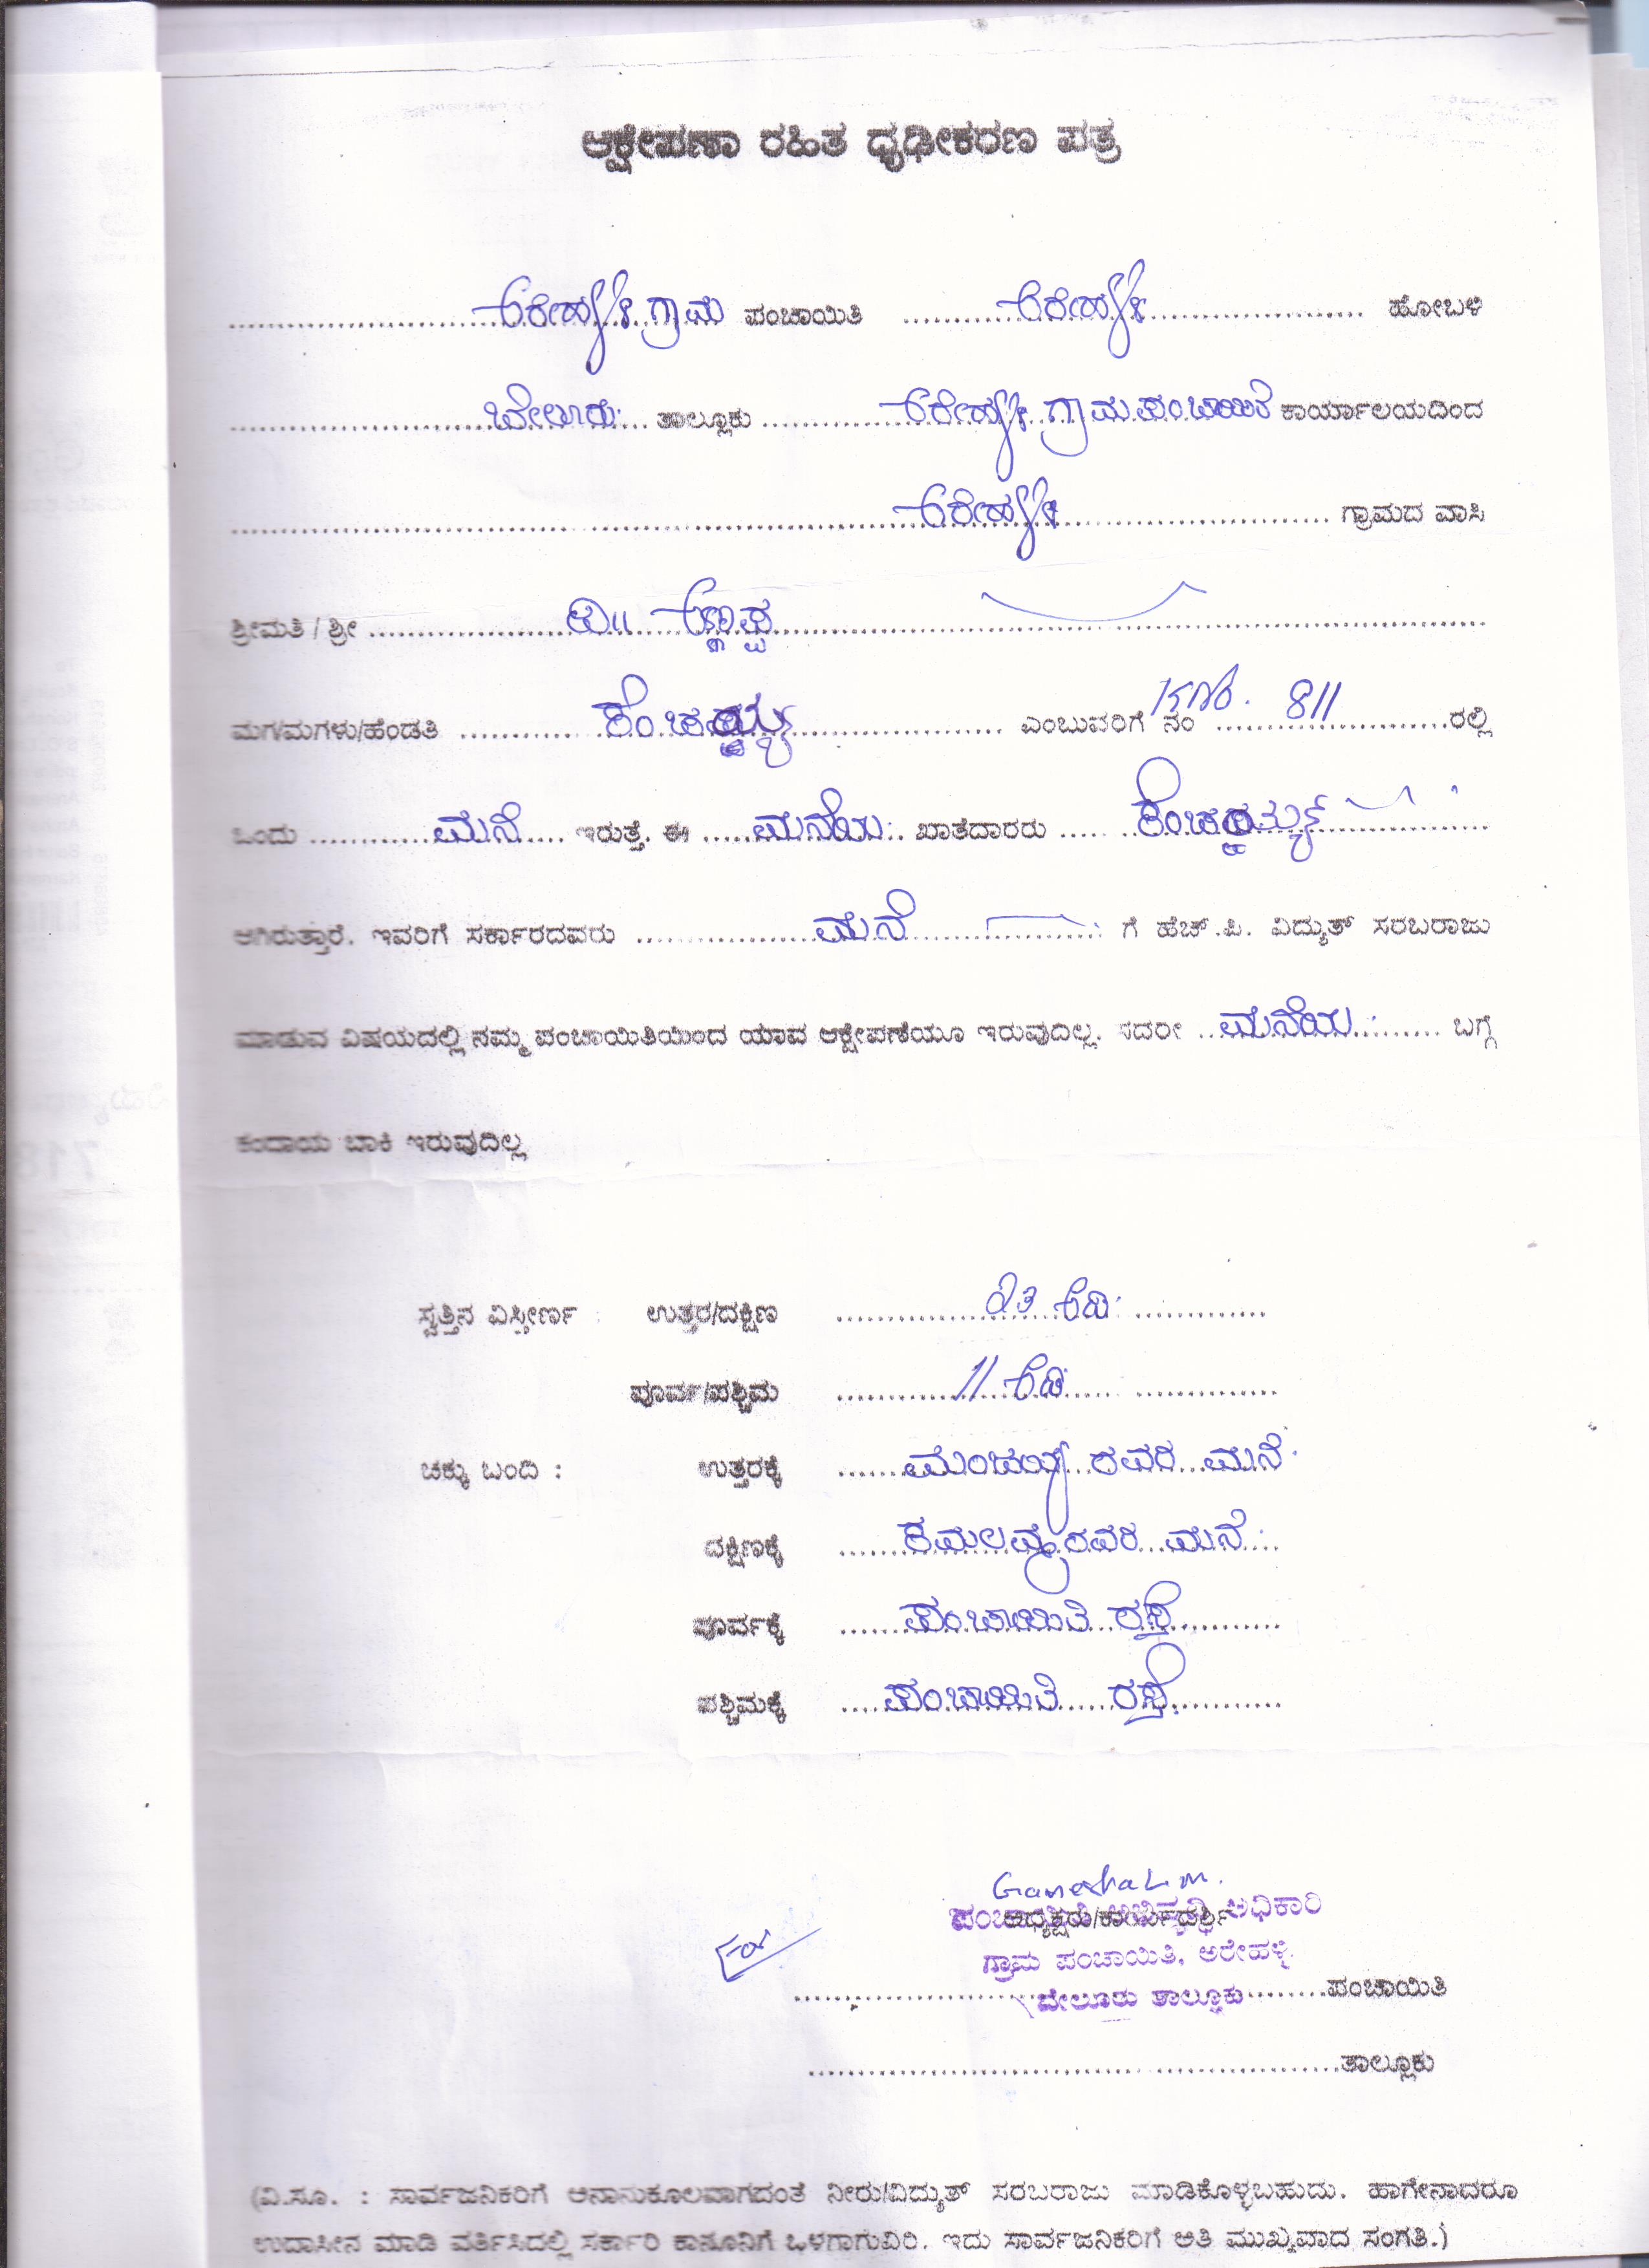 ಆಕ್ಷೇಪಣಾ ರಹಿತ ಧೃಢೀಕರಣ ಪತ್ರ
.......... ಅರೇಹಳ್ಳಿ ಗ್ರಾಮ ಪಂಚಾಯಿತಿ .......... ಅರೇಹಳ್ಳಿ .......... ಹೋಬಳಿ
.......... ಬೇಲೂರು ... ತಾಲ್ಲೂಕು .......... ಅರೇಹಳ್ಳಿ ಗ್ರಾಮ ಪಂಚಾಯಿತಿ ಕಾರ್ಯಾಲಯದಿಂದ
.......... ಅರೇಹಳ್ಳಿ .......... ಗ್ರಾಮದ ವಾಸಿ
ಶ್ರೀಮತಿ / ಶ್ರೀ ..........
ಮಗ/ಮಗಳು/ಹೆಂಡತಿ .......... ಎಂಬುವರಿಗೆ ನಂ .... 811 ..........ರಲ್ಲಿ
ಒಂದು .......... ಮನೆ .... ಇರುತ್ತೆ. ಈ ..... ಮನೆಯ .. ಖಾತೆದಾರರು ..........
ಆಗಿರುತ್ತಾರೆ. ಇವರಿಗೆ ಸರ್ಕಾರದವರು .......... ಮನೆ .......... ಗೆ ಹೆಚ್.ಪಿ. ವಿದ್ಯುತ್ ಸರಬರಾಜು
ಮಾಡುವ ವಿಷಯದಲ್ಲಿ ನಮ್ಮ ಪಂಚಾಯಿತಿಯಿಂದ ಯಾವ ಆಕ್ಷೇಪಣೆಯೂ ಇರುವುದಿಲ್ಲ. ಸದರೀ .. ಮನೆಯ .......... ಬಗ್ಗೆ
ಕಂದಾಯ ಬಾಕಿ ಇರುವುದಿಲ್ಲ
ಸ್ವತ್ತಿನ ವಿಸ್ತೀರ್ಣ : ಉತ್ತರ/ದಕ್ಷಿಣ .......... ೭೩ ಅಡಿ ..........
ಪೂರ್ವ/ಪಶ್ಚಿಮ .......... 11 ಅಡಿ ..........
ಚಕ್ಕು ಬಂದಿ : ಉತ್ತರಕ್ಕೆ ...... ರವರ ಮನೆ
ದಕ್ಷಿಣಕ್ಕೆ ...... ಕಮಲಮ್ಮ ರವರ ಮನೆ
ಪೂರ್ವಕ್ಕೆ ...... ಪಂಚಾಯಿತಿ ರಸ್ತೆ ..........
ಪಶ್ಚಿಮಕ್ಕೆ .... ಪಂಚಾಯಿತಿ ರಸ್ತೆ ..........
Ganesha L.m.
ಪಂಚಾಯಿತಿ ಅಭಿವೃದ್ಧಿ ಅಧಿಕಾರಿ
ಅಧ್ಯಕ್ಷರು/ಕಾರ್ಯದರ್ಶಿ
For
ಗ್ರಾಮ ಪಂಚಾಯಿತಿ, ಅರೇಹಳ್ಳಿ
..........ಪಂಚಾಯಿತಿ
ಬೇಲೂರು ತಾಲ್ಲೂಕು
..........ತಾಲ್ಲೂಕು
(ವಿ.ಸೂ. : ಸಾರ್ವಜನಿಕರಿಗೆ ಅನಾನುಕೂಲವಾಗದಂತೆ ನೀರು/ವಿದ್ಯುತ್ ಸರಬರಾಜು ಮಾಡಿಕೊಳ್ಳಬಹುದು. ಹಾಗೇನಾದರೂ
ಉದಾಸೀನ ಮಾಡಿ ವರ್ತಿಸಿದಲ್ಲಿ ಸರ್ಕಾರಿ ಕಾನೂನಿಗೆ ಒಳಗಾಗುವಿರಿ. ಇದು ಸಾರ್ವಜನಿಕರಿಗೆ ಅತಿ ಮುಖ್ಯವಾದ ಸಂಗತಿ.)